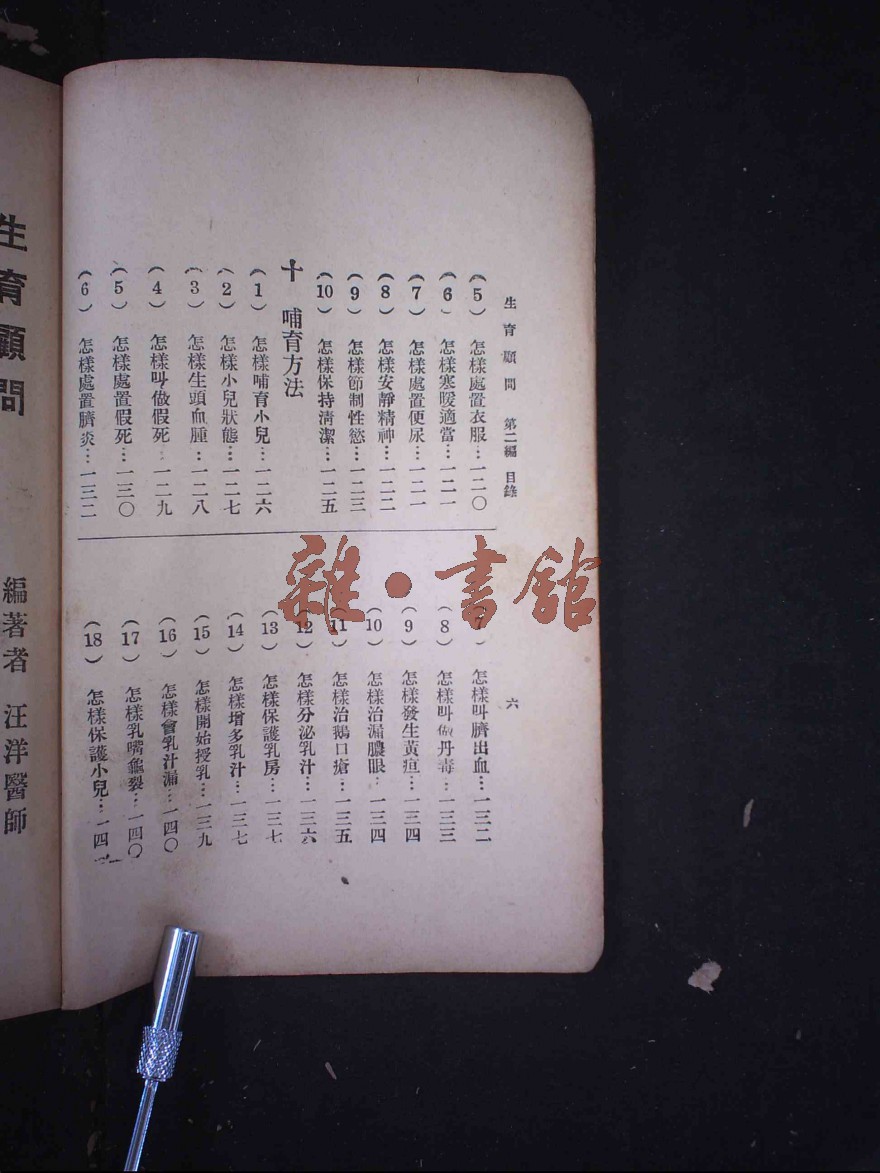 生育顧問 第二編 目錄
六
(5) 怎樣處置衣服…一二〇
(6) 怎樣寒暖適當…一二一
(7) 怎樣處置便尿…一二一
(8) 怎樣安靜精神…一二二
(9) 怎樣節制性慾…一二三
(10) 怎樣保持清潔…一二五
十 哺育方法
(1) 怎樣哺育小兒…一二六
(2) 怎樣小兒狀態…一二七
(3) 怎樣生頭血腫…一二八
(4) 怎樣叫做假死…一二九
(5) 怎樣處置假死…一三〇
(6) 怎樣處置臍炎…一三二
(7) 怎樣叫臍出血…一三二
(8) 怎樣叫做丹毒…一三三
(9) 怎樣發生黃疸…一三四
(10) 怎樣治漏膿眼…一三四
(11) 怎樣治鵝口瘡…一三五
(12) 怎樣分泌乳汁…一三六
(13) 怎樣保護乳房…一三七
(14) 怎樣增多乳汁…一三七
(15) 怎樣開始授乳…一三九
(16) 怎樣會乳汁漏…一四〇
(17) 怎樣乳嘴龜裂…一四〇
(18) 怎樣保護小兒…一四
生育顧問
編著者 汪洋醫師
雜·書館